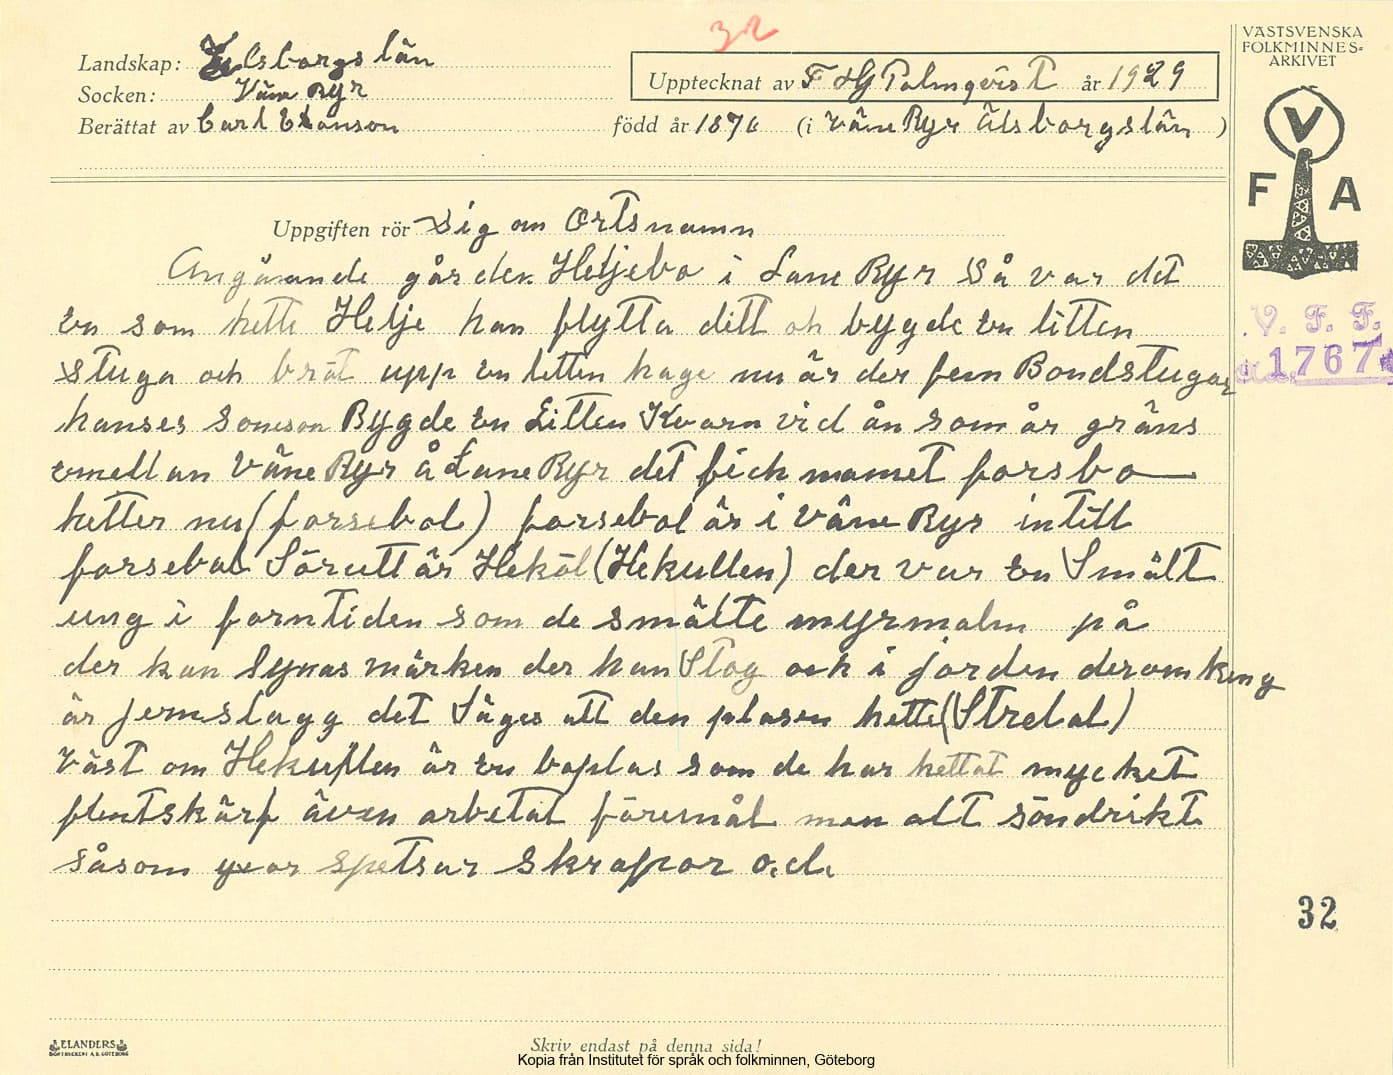 32
VÄSTSVENSKA
FOLKMINNES-
ARKIVET
Landskap: Elsborgs län
Socken: Väne Ryr
Upptecknat av F HG Palmqvist år 1929
Berättat av Carl Exanson född år 1876 (i Väne Ryr Älsborgslän)
V
F A
Uppgiften rör Sig om Ortsnamn
Angående gården Heljebo i Lane Ryr Så var det
En som hette Helje han flytta ditt oh bygde En litten
Stuga och bröt upp En litten hage nu är der fem Bondstugar
hanses Soneson Bygde En Litten Kvarn vid ån som är gräns
emellan Väne Ryr å Lane Ryr det fich namnet forsbo
hetter nu (forsebol) forsebol är i Väne Ryr intill
forsebol Sörutt är Hekôl (Hekullen) der var En Smält
ung i forntiden som de smälte myrmalm på
der kan Synas märken der han Stog och i jorden deromkring
är jernslagg det Säges att den plasen hette (Strelal)
Väst om Hekullen är En boplas som de har hettat mycket
flentskärf även arbetat föremål men alt söndrikt
såsom yxor spetsar skrapor o.d.
V. F. F.
1767
32
ELANDERS
BOKTRYCKERI A.B. GÖTEBORG
Skriv endast på denna sida!
Kopia från Institutet för språk och folkminnen, Göteborg